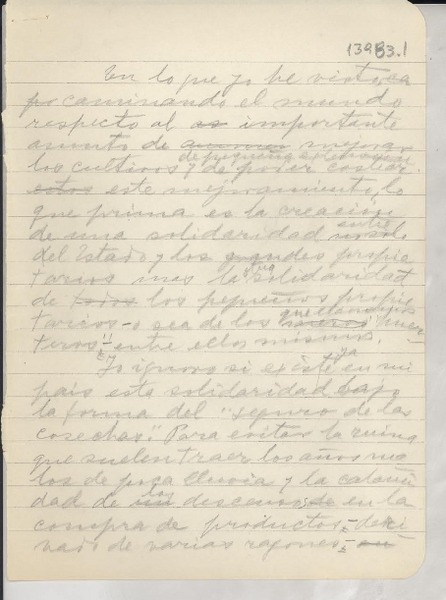 13983.1
En lo que yo he visto, ca
caminando el mundo
respecto al importante
asunto de mejorar
los cultivos de pequeña extensión y de poder costear
este mejoramiento, lo
que prima es la creación
de una solidaridad entre
del Estado y los grandes propie
tarios mas la otra solidaridad
de los pequeños propie
tarios - o sea de los que llamamos
entre ellos mismos.
Yo ignoro si existe ya en mi
país esta solidaridad bajo
la forma del "seguro de las
cosechas". Para evitar la ruina
que suelen traer los años ma
los de poca lluvia y la calami
dad de los descensos en la
compra de productos, - deri
vado de varias razones -